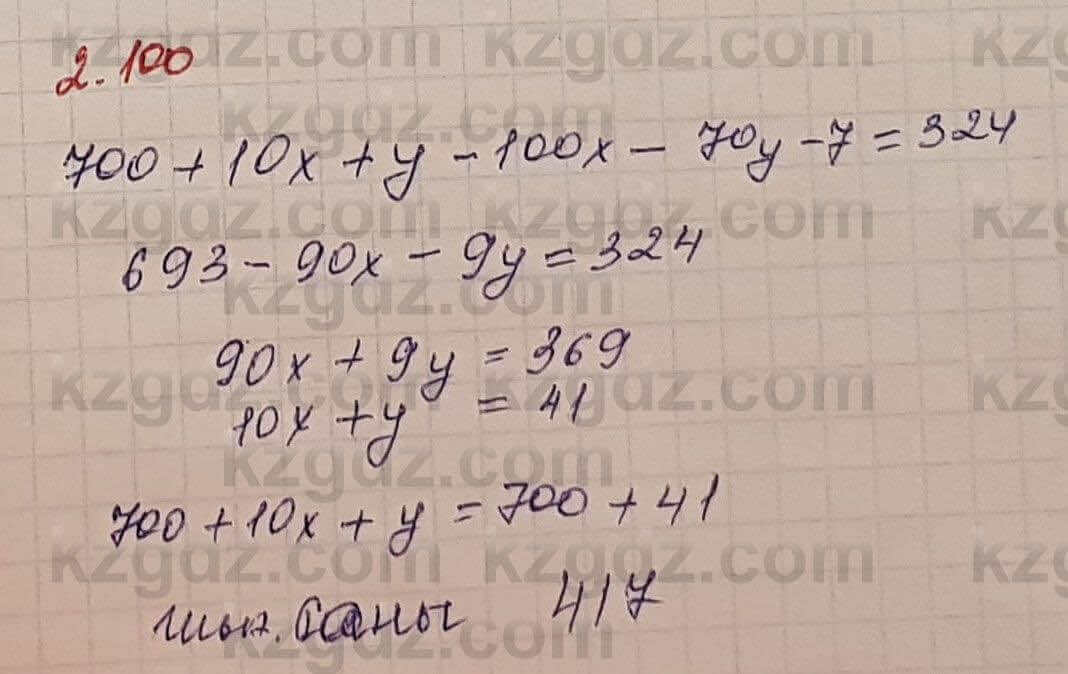 2.100
700 + 10x + y - 100x - 70y - 7 = 324
693 - 90x - 9y = 324
90x + 9y = 369
10x + y = 41
700 + 10x + y = 700 + 41
417